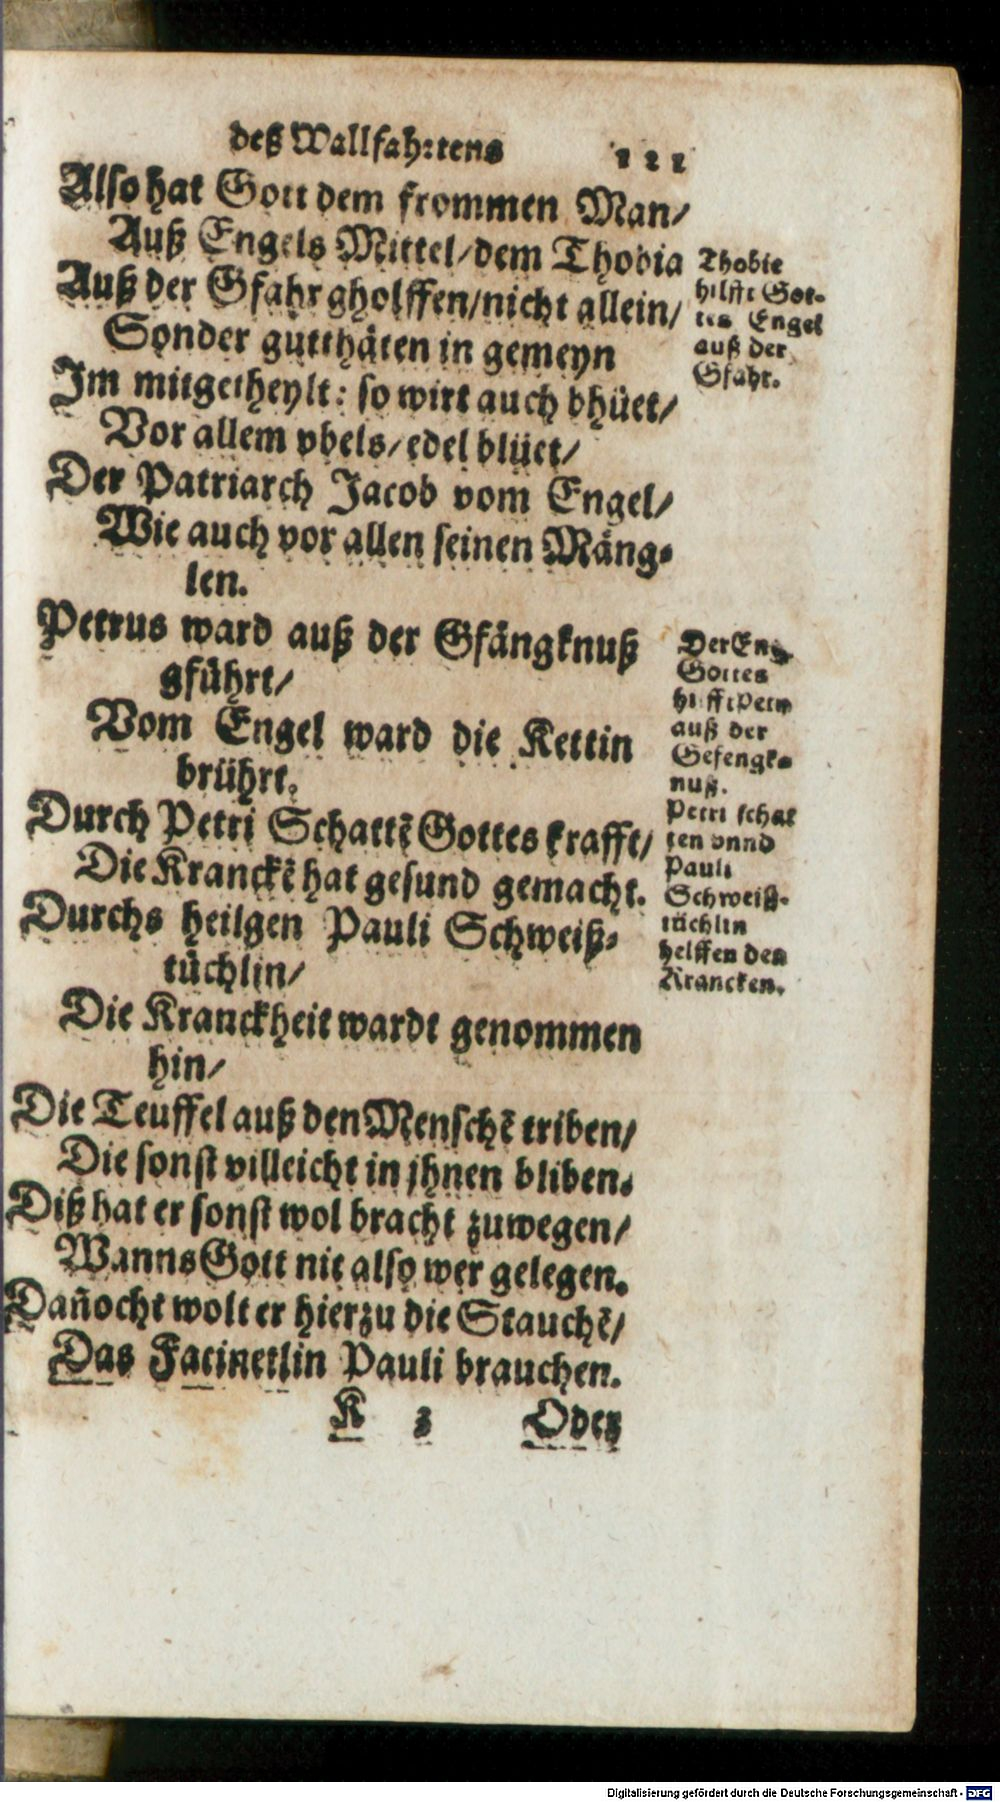 deß Wallfahrtens 121
Also hat Gott dem frommen Man/
Auß Engels Mittel/dem Thobia
Auß der Gfahr gholffen/nicht allein/
Sonder gutthäten in gemeyn
Im mitgetheylt: so wirt auch bhüet/
Vor allem vbels/edel blüet/
Der Patriarch Jacob vom Engel/
Wie auch vor allen seinen Mäng-
len.
Petrus ward auß der Gfängknuß
gführt/
Vom Engel ward die Kettin
brührt.
Durch Petri Schattē Gottes krafft/
Die Kranckē hat gesund gemacht.
Durchs heilgen Pauli Schweiß-
tüchlin/
Die Kranckheit wardt genommen
hin/
Die Teuffel auß den Menschē triben/
Die sonst villeicht in jhnen bliben.
Diß hat er sonst wol bracht zuwegen/
Wanns Gott nit also wer gelegen.
Dañocht wolt er hierzu die Stauchē/
Das Facinetlin Pauli brauchen.
K 3 Oder
Thobie
hilfft Got-
tes Engel
auß der
Gfahr.
Der Eng.
Gottes
hilfft Petro
auß der
Gefengk-
nuß.
Petri schat
ten vnnd
Pauli
Schweiß-
tüchlin
helffen den
Krancken.
Digitalisierung gefördert durch die Deutsche Forschungsgemeinschaft - DFG